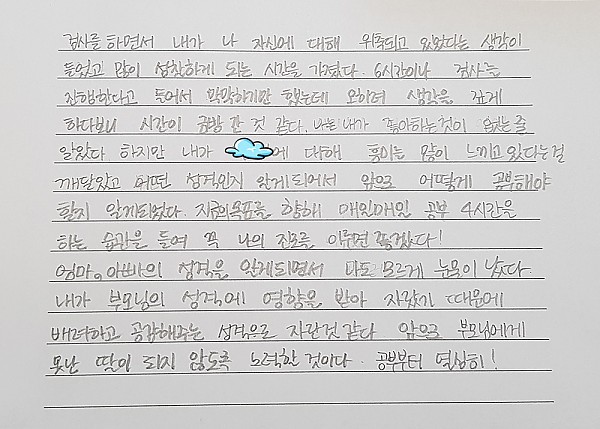 검사를 하면서 내가 나 자신에 대해 위축되고 있었다는 생각이
들었고 많이 성찰하게 되는 시간을 가졌다. 6시간이나 검사를
진행한다고 들어서 막막하기만 했는데 오히려 생각을 깊게
하다보니 시간이 금방 간 것 같다. 나는 내가 좋아하는것이 없는줄
알았다 하지만 내가 에 대해 흥미를 많이 느끼고 있다는걸
깨달았고 어떤 성격인지 알게되어서 앞으로 어떻게 공부해야
할지 알게되었다. 지금의목표를 향해 매일매일 공부 4시간을
하는 습관을 들여 꼭 나의 진로를 이루면 좋겠다!
엄마, 아빠의 성격을 알게되면서 나도 모르게 눈물이 났다.
내가 부모님의 성격에 영향을 받아 자랐기 때문에
배려하고 공감해주는 성격으로 자란것 같다 앞으로 부모님에게
못난 딸이 되지 않도록 노력할 것이다. 공부부터 열심히!